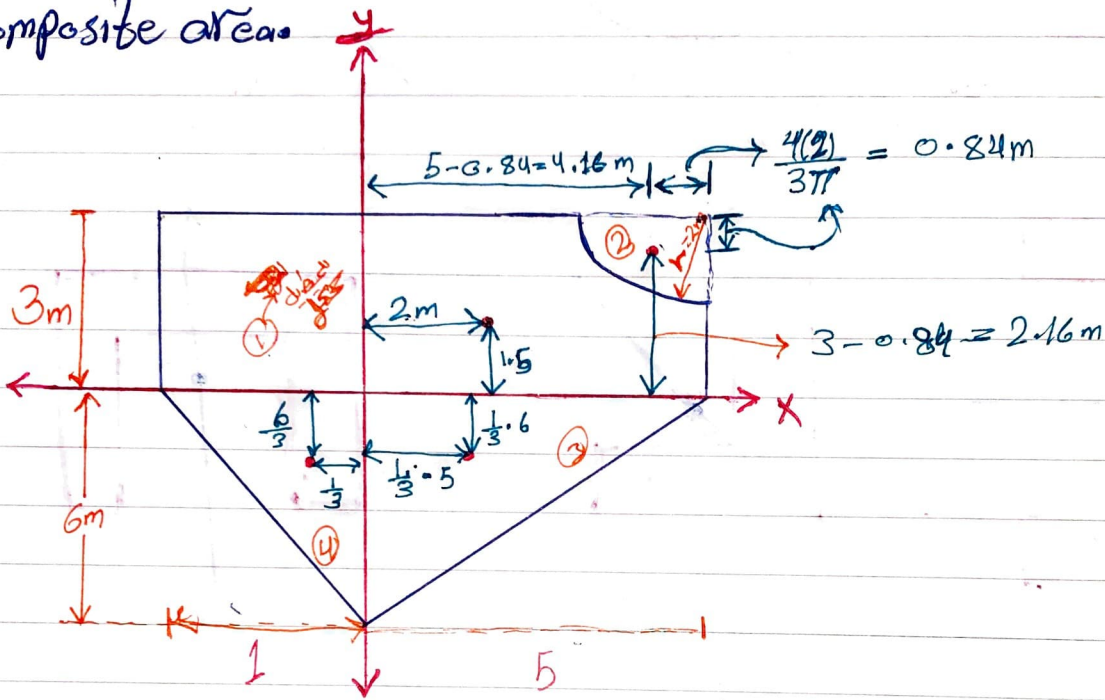 omposite area.
y
5-0.84=4.16m
4(2)/3π = 0.84m
②
r=2m
3m
①
2m
1.5
3-0.84=2.16m
X
6/3
1/3·6
③
1/3
1/3·5
6m
④
1
5